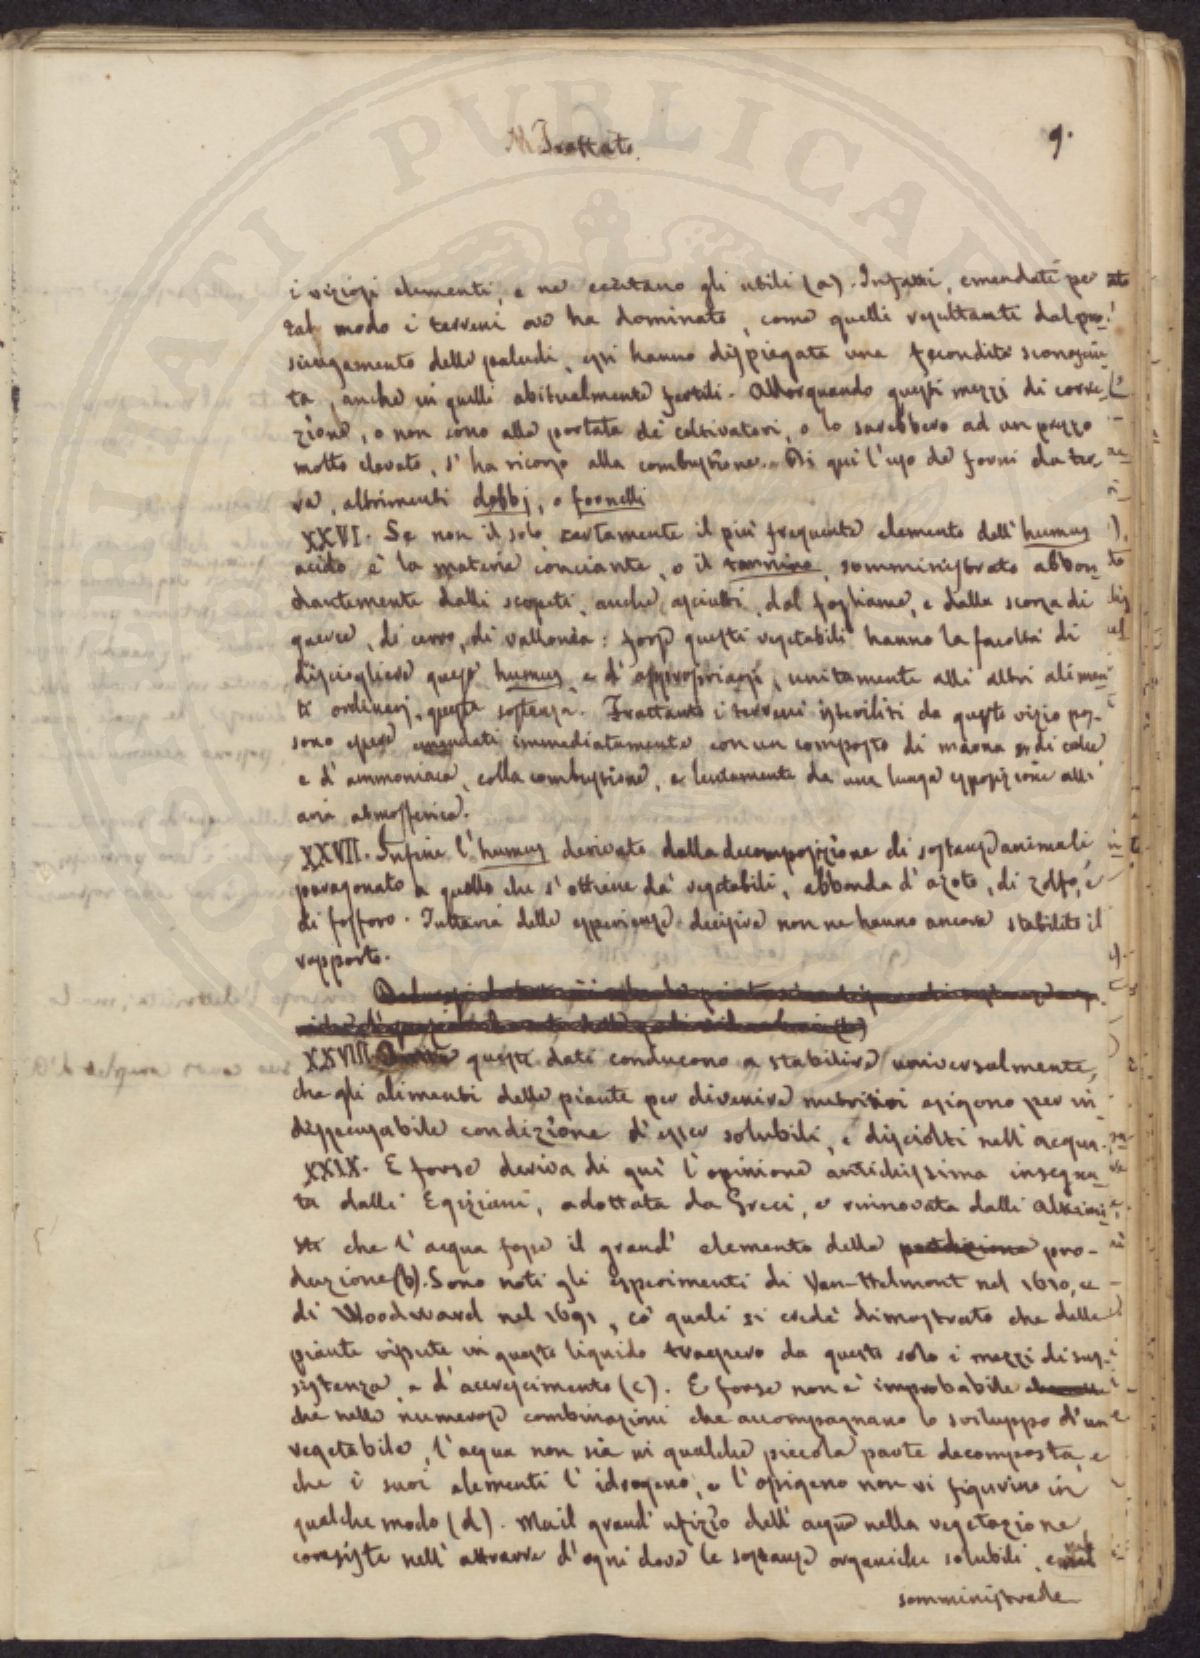 Al Trattato.
9.
i viziosi elementi, e ne eccitano gli utili (a). Infatti, emendati per
tal modo i terreni ove ha dominato, come quelli resultanti dal pro-
sciugamento delle paludi, essi hanno dispiegata una fecondità sconosciu-
ta, anche in quelli abitualmente fertili. Allorquando questi mezzi di corre-
zione, o non sono alla portata de' coltivatori, o lo sarebbero ad un prezzo
molto elevato, s'ha ricorso alla combustione. Di qui l'uso de' forni da ter-
ra, altrimenti debbj, o fornelli
XXVI. Se non il solo, certamente il più frequente elemento dell'humus
acido è la materia conciante, o il tannino, somministrato abbon-
dantemente dalli scopeti, anche asciutti, dal fogliame, e dalla scorza di
querce, di cerro, di vallonéa: forse questi vegetabili hanno la facoltà di
disciogliere quest' humus, e d'appropriarsi, unitamente alli altri alimen-
ti ordinarj, questa sostanza. Frattanto i terreni isteriliti da questo vizio pos-
sono essere emendati immediatamente con un composto di marna di calce
e d'ammoniaca, colla combustione, e lentamente da una lunga esposizione all'
aria atmosferica.
XXVII. Infine l'humus derivato dalla decomposizione di sostanze animali,
paragonato a quello che s'ottiene da' vegetabili, abbonda d'azoto, di zolfo, e
di fosforo. Tuttavia delle esperienze decisive non ne hanno ancora stabilito il
rapporto.
XXVIII. questi dati conducono a stabilire universalmente,
che gli alimenti delle piante per divenire nutritivi esigono per in-
dispensabile condizione d'esser solubili, e disciolti nell'acqua.
XXIX. E forse deriva di quì l'opinione antichissima insegna-
ta dalli Egiziani, adottata da Greci, e rinnovata dalli Alchimi-
sti che l'acqua fosse il grand' elemento della pro-
duzione (b). Sono noti gli esperimenti di Van-Helmont nel 1610, e
di Woodward nel 1691, co' quali si crede dimostrato che delle
piante vissute in questo liquido traessero da questo solo i mezzi di sus-
sistenza, e d'accrescimento (c). E forse non è improbabile
che nelle numerose combinazioni che accompagnano lo sviluppo d'un
vegetabile, l'acqua non sia in qualche piccola parte decomposta, e
che i suoi elementi l'idrogeno, e l'ossigeno non vi figurino in
qualche modo (d). Ma il grand' ufizio dell'acqua nella vegetazione,
consiste nell'attrarre d'ogni dove le sostanze organiche solubili, e
somministrarle